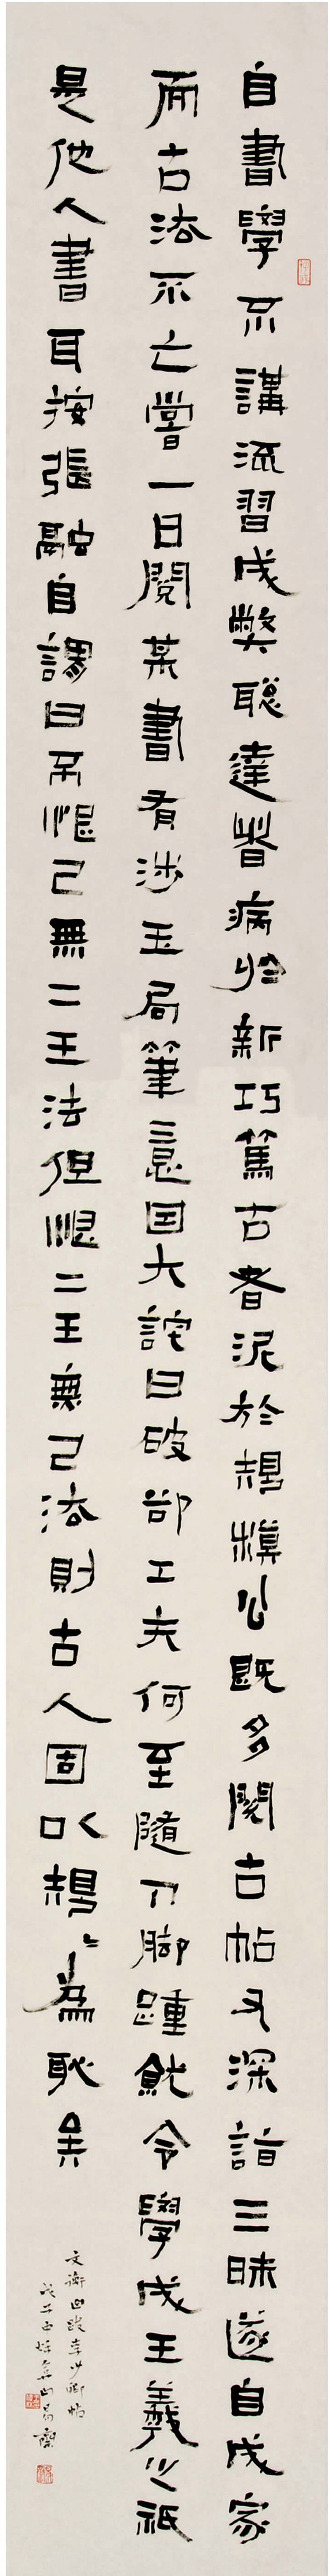 自書學不講流習成弊聰達者病於新巧篤古者泥於規模公既多閱古帖又深詣三昧遂自成家
而古法不亡嘗一日閱某書有涉玉局筆意因大詫曰破卻工夫何至隨人脚踵就令學成王羲之祗
是他人書耳按張融自謂曰不恨己無二王法但恨二王無己法則古人固以規〻為恥矣
文衡山跋李少卿帖
戊子